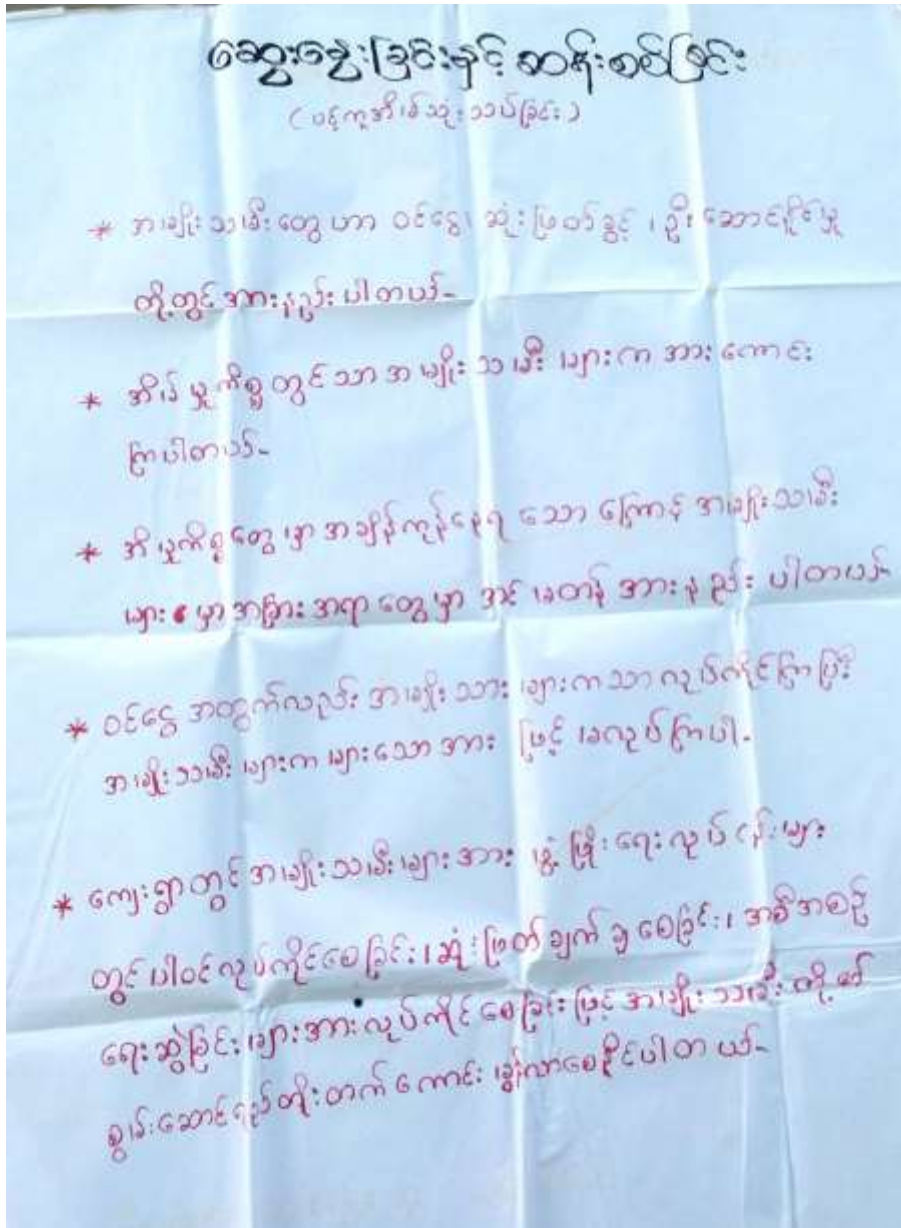 ဆွေးနွေးခြင်းနှင့် ဆန်းစစ်ခြင်း
(ပင့်ကူအိမ်သုံးသပ်ခြင်း)
* အမျိုးသမီးတွေဟာ ဝင်ငွေ၊ ဆုံးဖြတ်ခွင့်၊ ဦးဆောင်နိုင်မှု
တို့တွင် အားနည်းပါတယ်-
* အိမ်မှုကိစ္စတွင်သာ အမျိုးသမီးများက အားကောင်း
ကြပါတယ်-
* အိမှုကိစ္စတွေမှာ အချိန်ကုန်နေရသောကြောန့် အမျိုးသမီး
များမှာ အခြားအရာတွေမှာ အင်မတန် အားနည်းပါတယ်-
* ဝင်ငွေအတွက်လည်း အမျိုးသားများကသာ လုပ်ကိုင်ကြပြီး
အမျိုးသမီးများက များသောအားဖြင့် မလုပ်ကြပါ-
* ကျေးရွာတွင် အမျိုးသမီးများအား ဖွံ့ဖြိုးရေးလုပ်ငန်းများ
တွင် ပါဝင်လုပ်ကိုင်စေခြင်း၊ ဆုံးဖြတ်ချက်ချစေခြင်း၊ အစီအစဉ်
ရေးဆွဲခြင်းများအား လုပ်ကိုင်စေခြင်းဖြင့် အမျိုးသမီးတို့၏
စွမ်းဆောင်ရည်တိုးတက်ကောင်းမွန်လာစေနိုင်ပါတယ်-